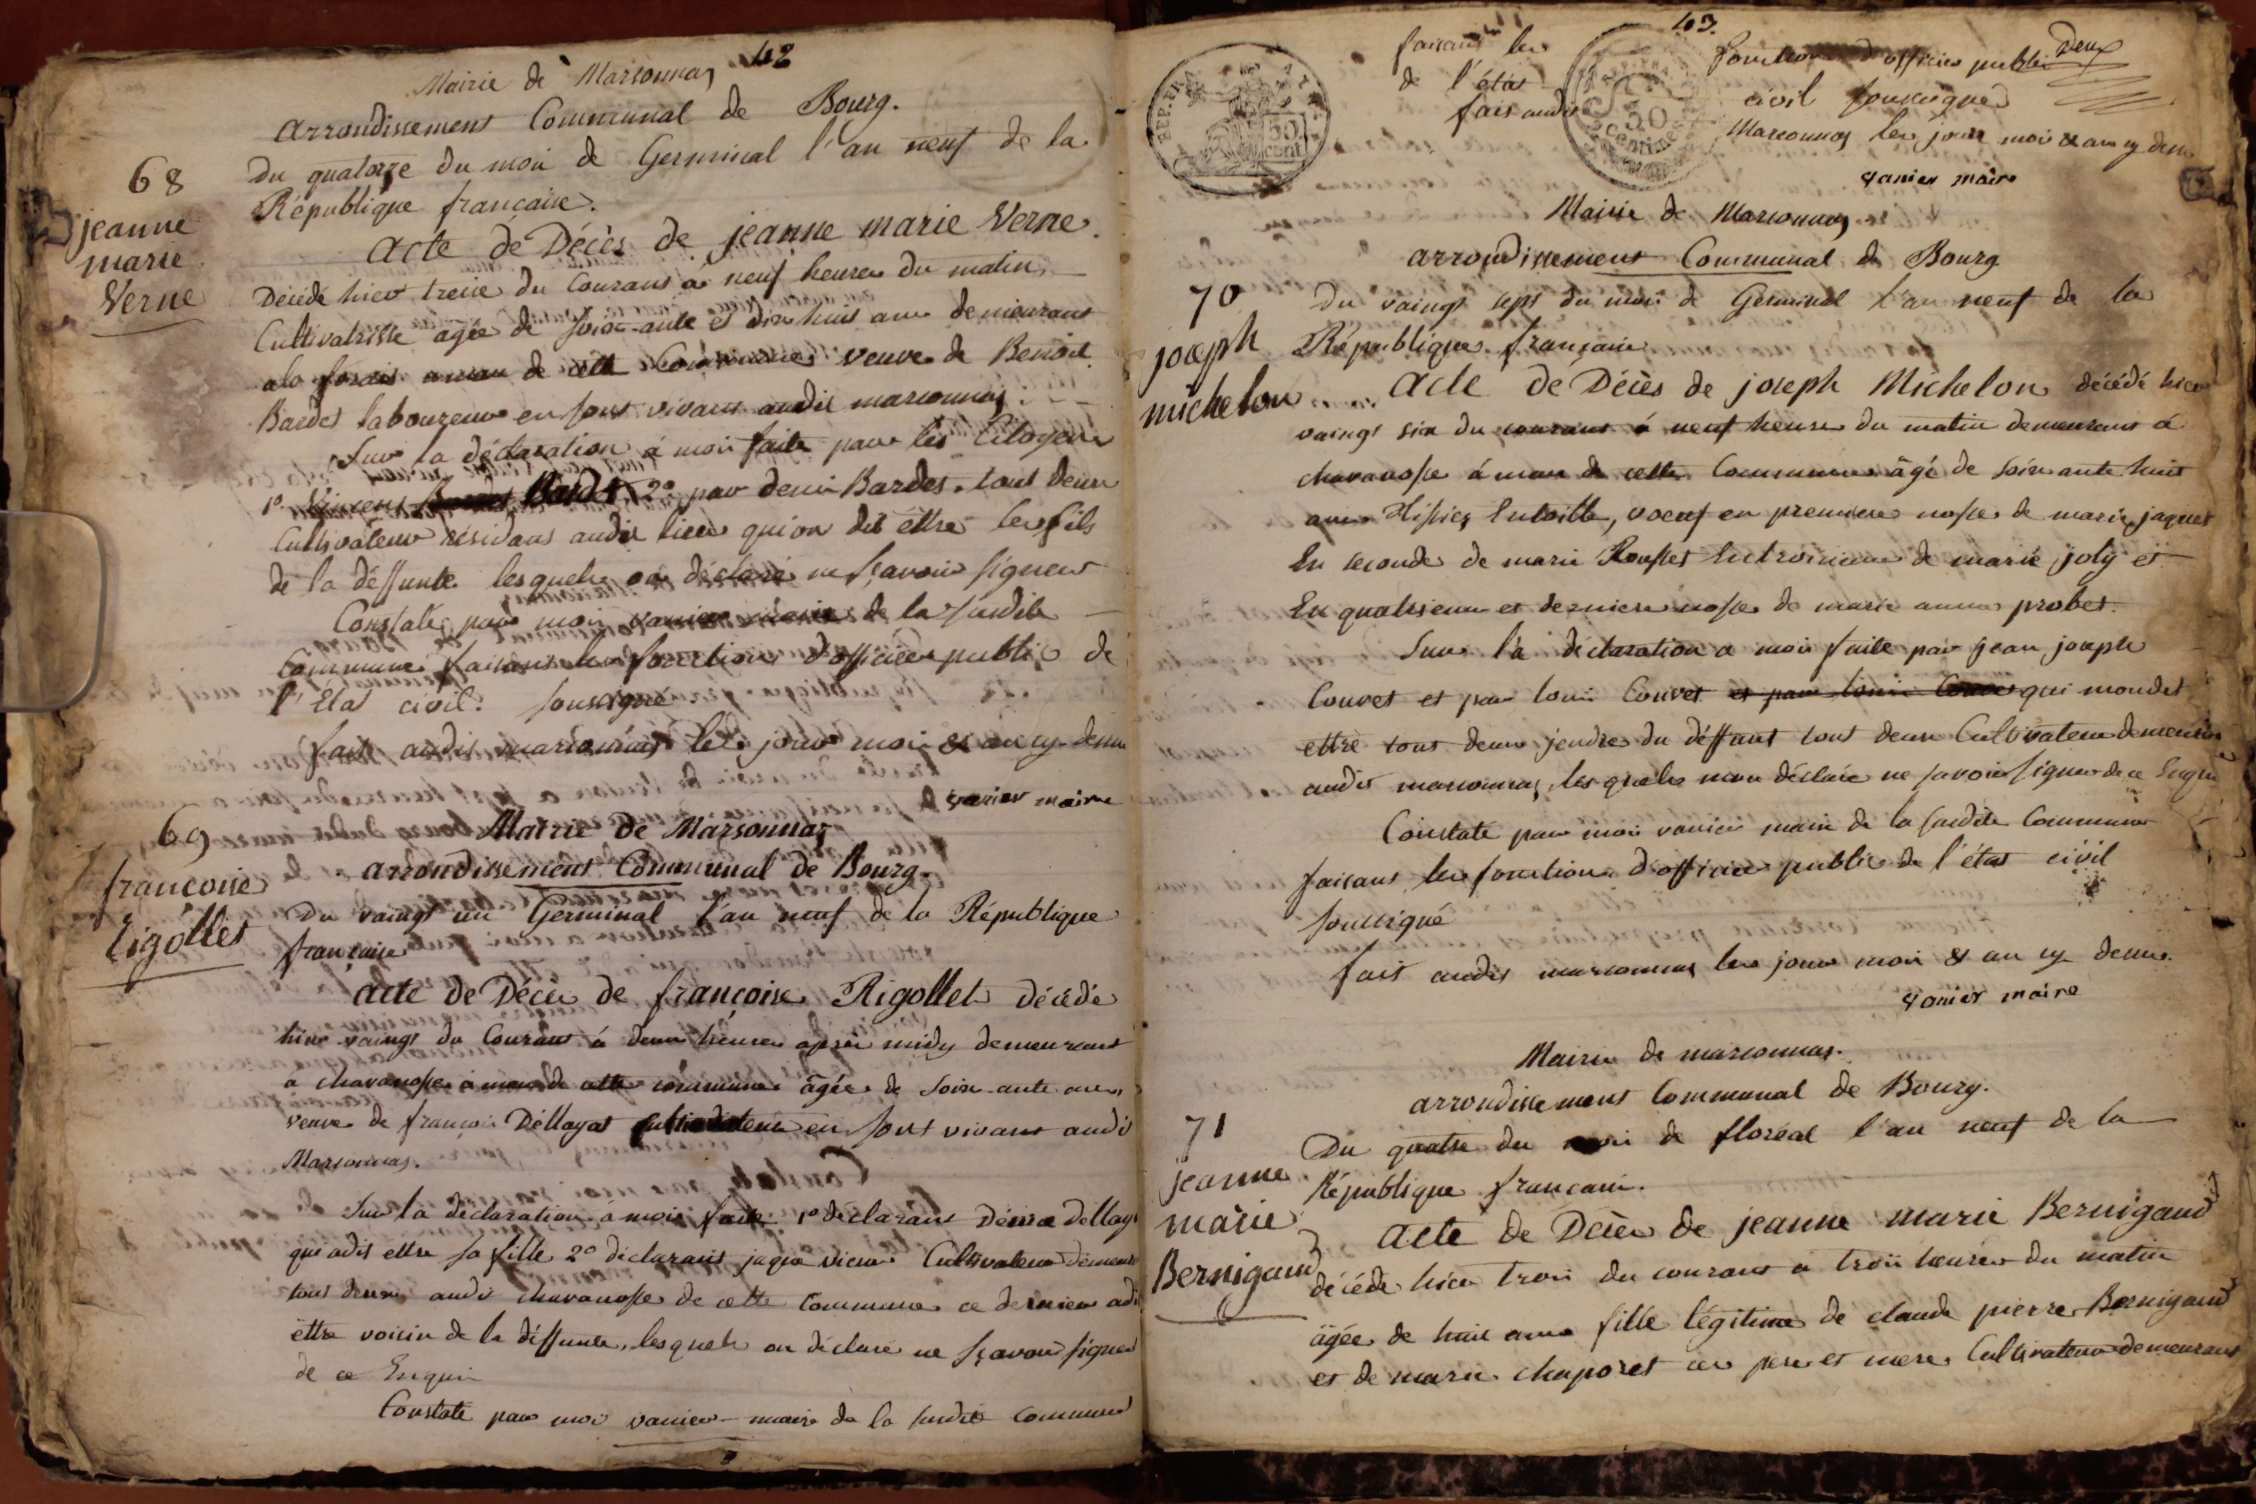 42
Mairie de Marsonnas
arrondissement Communal de Bourg.
68
Du quatorze du moi de Germinal l'an neuf de la
République francaise.
jeanne
marie
Verne
acte de Décès de jeanne marie Verne.
Décédé hier treise du Courant à neuf heures du matin
Cultivatrisse agée de soix-ante et dix huit ans demeurant
hameau de cette Commune veuve de Benoit
Bardet laboureur en sont vivant audit marsonnas
Sur la déclaration à moi faite par les Citoyens
1º Vincent Bardet 2º par denis Bardet tout deux
Cultivateur résidans audit lieu qui on dit ettre les fils
de la déffunte lesquels on déclaré ne sçavoir signer
Constaté par moi vanier maire de la susdite
Commune faisant les fonctions d'officier public de
l'Etat civil soussigné
fait audit marsonnas les jour moi & an cy dessu
vanier maire
69
Mairie de Marsonnas
arrondissement Communal de Bourg.
francoise
Rigollet
Du vaingt un Germinal l'an neuf de la République
francaise
acte de Décès de françoise Rigollet décédé
hier vaingt du Courant à deux heures aprèe midy demeurant
a chavanosse amau de cette commune âgée de soix-ante ans
veuve de francois Déllayat cultivateur en sont vivant audit
Marsonnas.
Sur la déclaration à moi faite 1º déclarant Déllay
qui adit ettre sa fille 2º déclarant jaque vieux Cultivateur demeur
tout deux audit chavanosse de cette commune ce dernier adi
ettre voisin de la déffunte, lesquels on déclaré ne sçavoir signer
de ce Enquis
Constaté par moi vanier maire de la susdit commune
43
deux
REP. FRA
50
cent
faisant les fonctions d'officier public
50
centimes
de l'état civil soussigné
fait audit Marsonnas les jour moi & an cy dessu
vanier maire
Mairie de Marsonnas
arrondissement Communal de Bourg
70
Du vaingt sept du moi de Germinal l'an neuf de la
République francaise
joseph
michelon
acte de Décès de joseph Michelon décédé hier
vaingt six du courant à neuf heure du matin demeurant à
chavanosse amau de cette Commune âgé de soix ante huit
ans, voeuf en premiere nosse de marie jaquet
En seconde de marie Rousset En troisieme de marie joly et
En quatrieme et derniere nosse de marie anne probet.
Sur la déclaration a moi faite par jean joseph
Couvet et par loui Couvet et par loui Couvet qui mondit
ettre tous deux jendre du déffunt tout deux Cultivateur demeurant
audit marsonnas, les quels mon déclaré ne savoir signer de ce Enqui
Constaté par moi vanier maire de la susdite Commune
faisant les fonctions d'officier public de l'état civil
soussigné
fait audit marsonnas les jour moi & an cy dessu.
vanier maire
Mairie de marsonnas.
arrondissement Communal de Bourg.
71
Du quatre du moi de floréal l'an neuf de la
République francaise.
jeanne
marie
Bernigaud
acte de Décèe de jeanne marie Bernigaud
décédé hier trois du courant à troi heures du matin
âgée de huit ans fille légitime de claude pierre Bernigaud
et de marie chaporet ces pere et mere Cultivateur demeurant